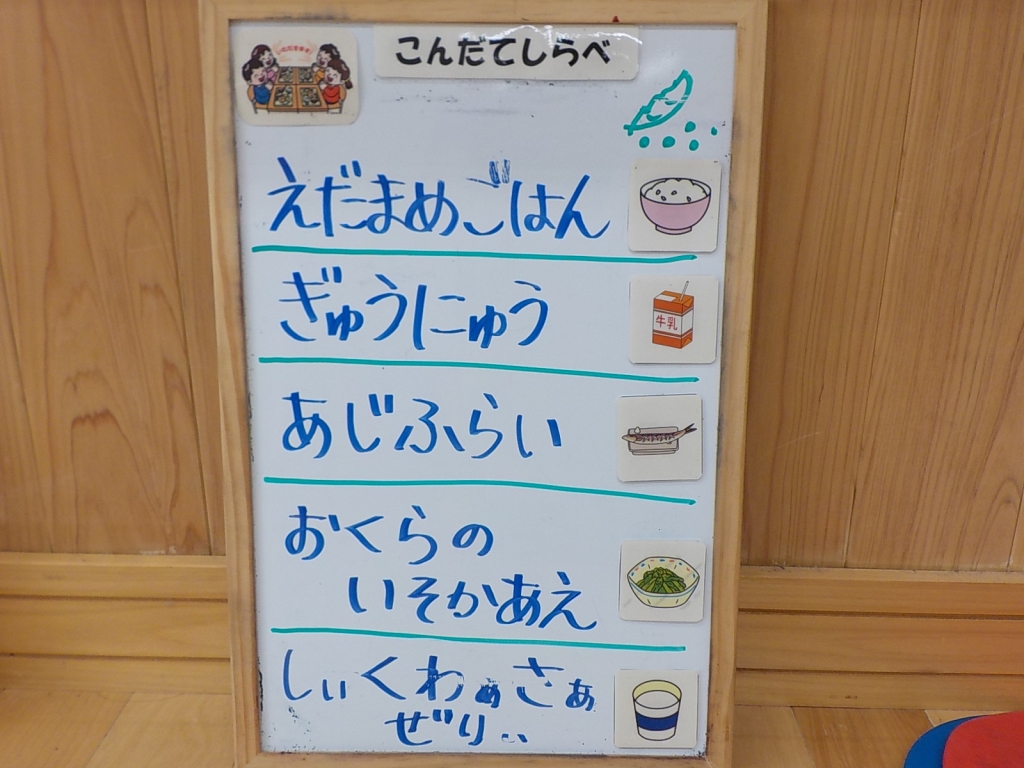 こんだてしらべ
えだまめごはん
ぎゅうにゅう
牛乳
あじふらい
おくらの
いそかあえ
しぃくわぁさぁ
ぜりぃ